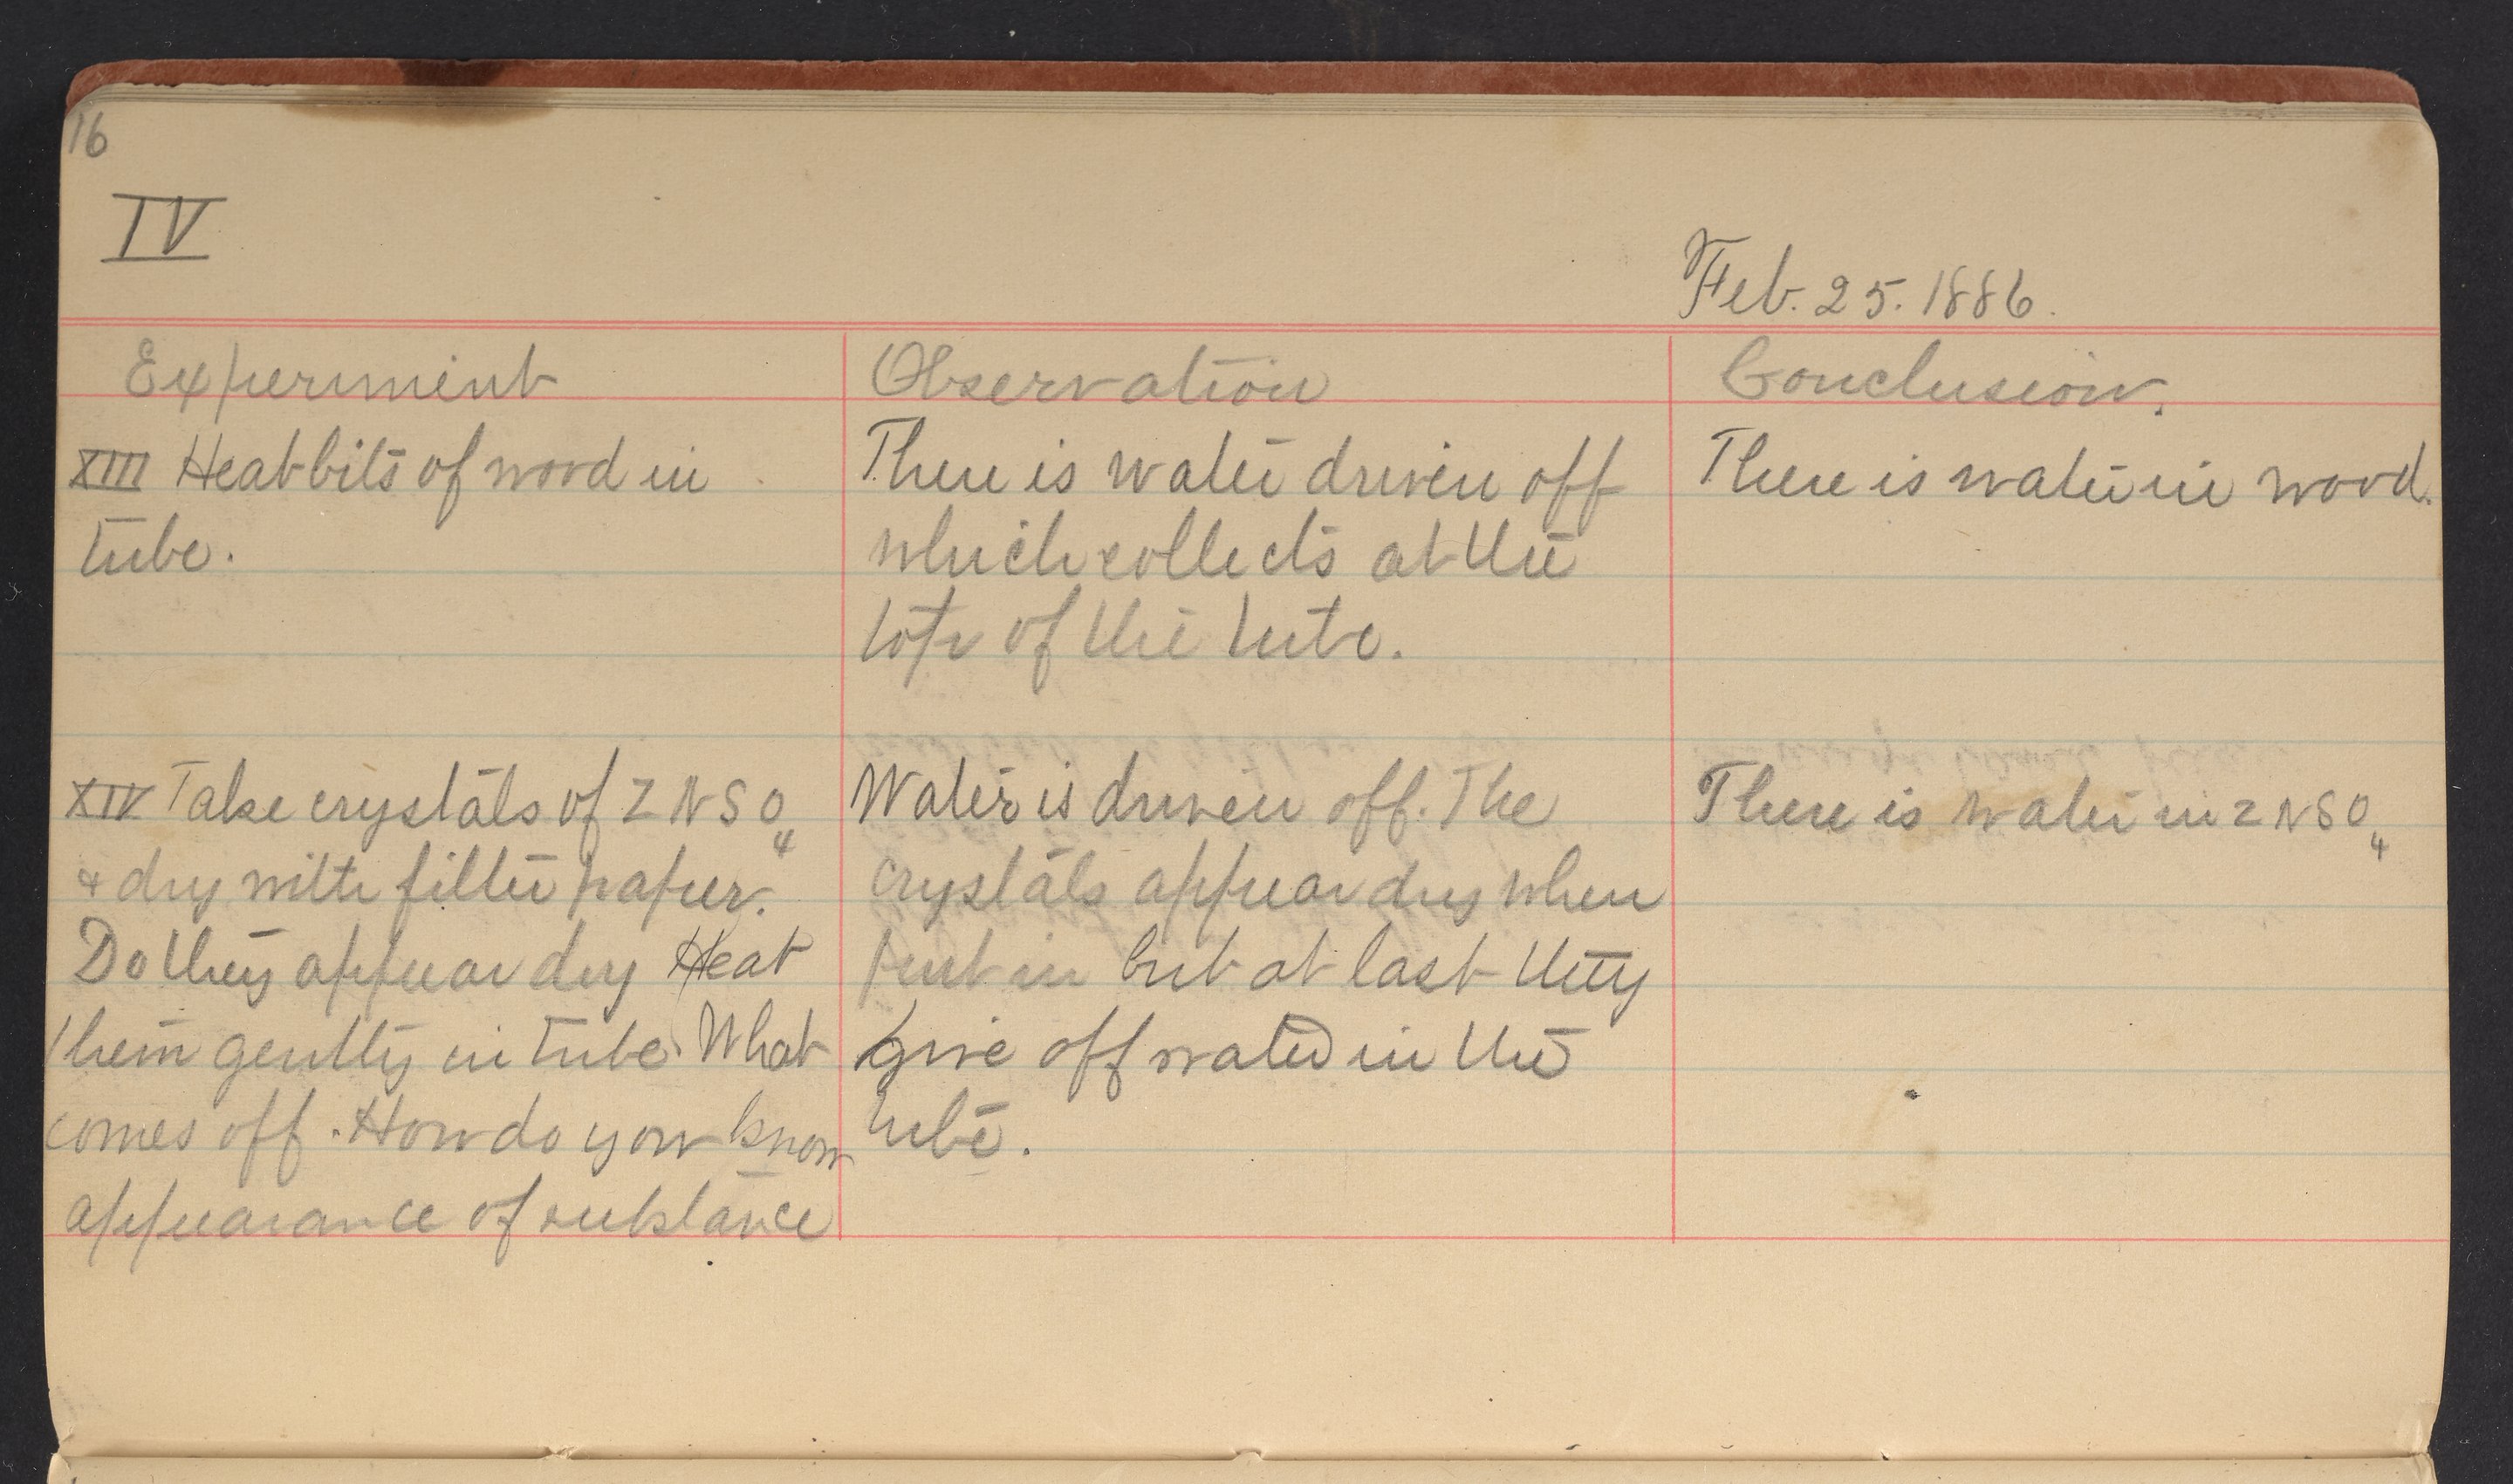 16
IV
Feb. 25. 1886.
Experiment
Observation
Conclusion.
XIII Heat bits of wood in
tube.
There is water driven off
which collects at the
top of the tube.
There is water in wood.
XIV Take crystals of ZNSO4
& dry with filter paper.
Do they appear dry Heat
them gently in tube. What
comes off. How do you know
appearance of substance
Water is driven off. The
crystals appear dry when
put in but at last they
give off water in the
tube.
There is water in ZNSO4